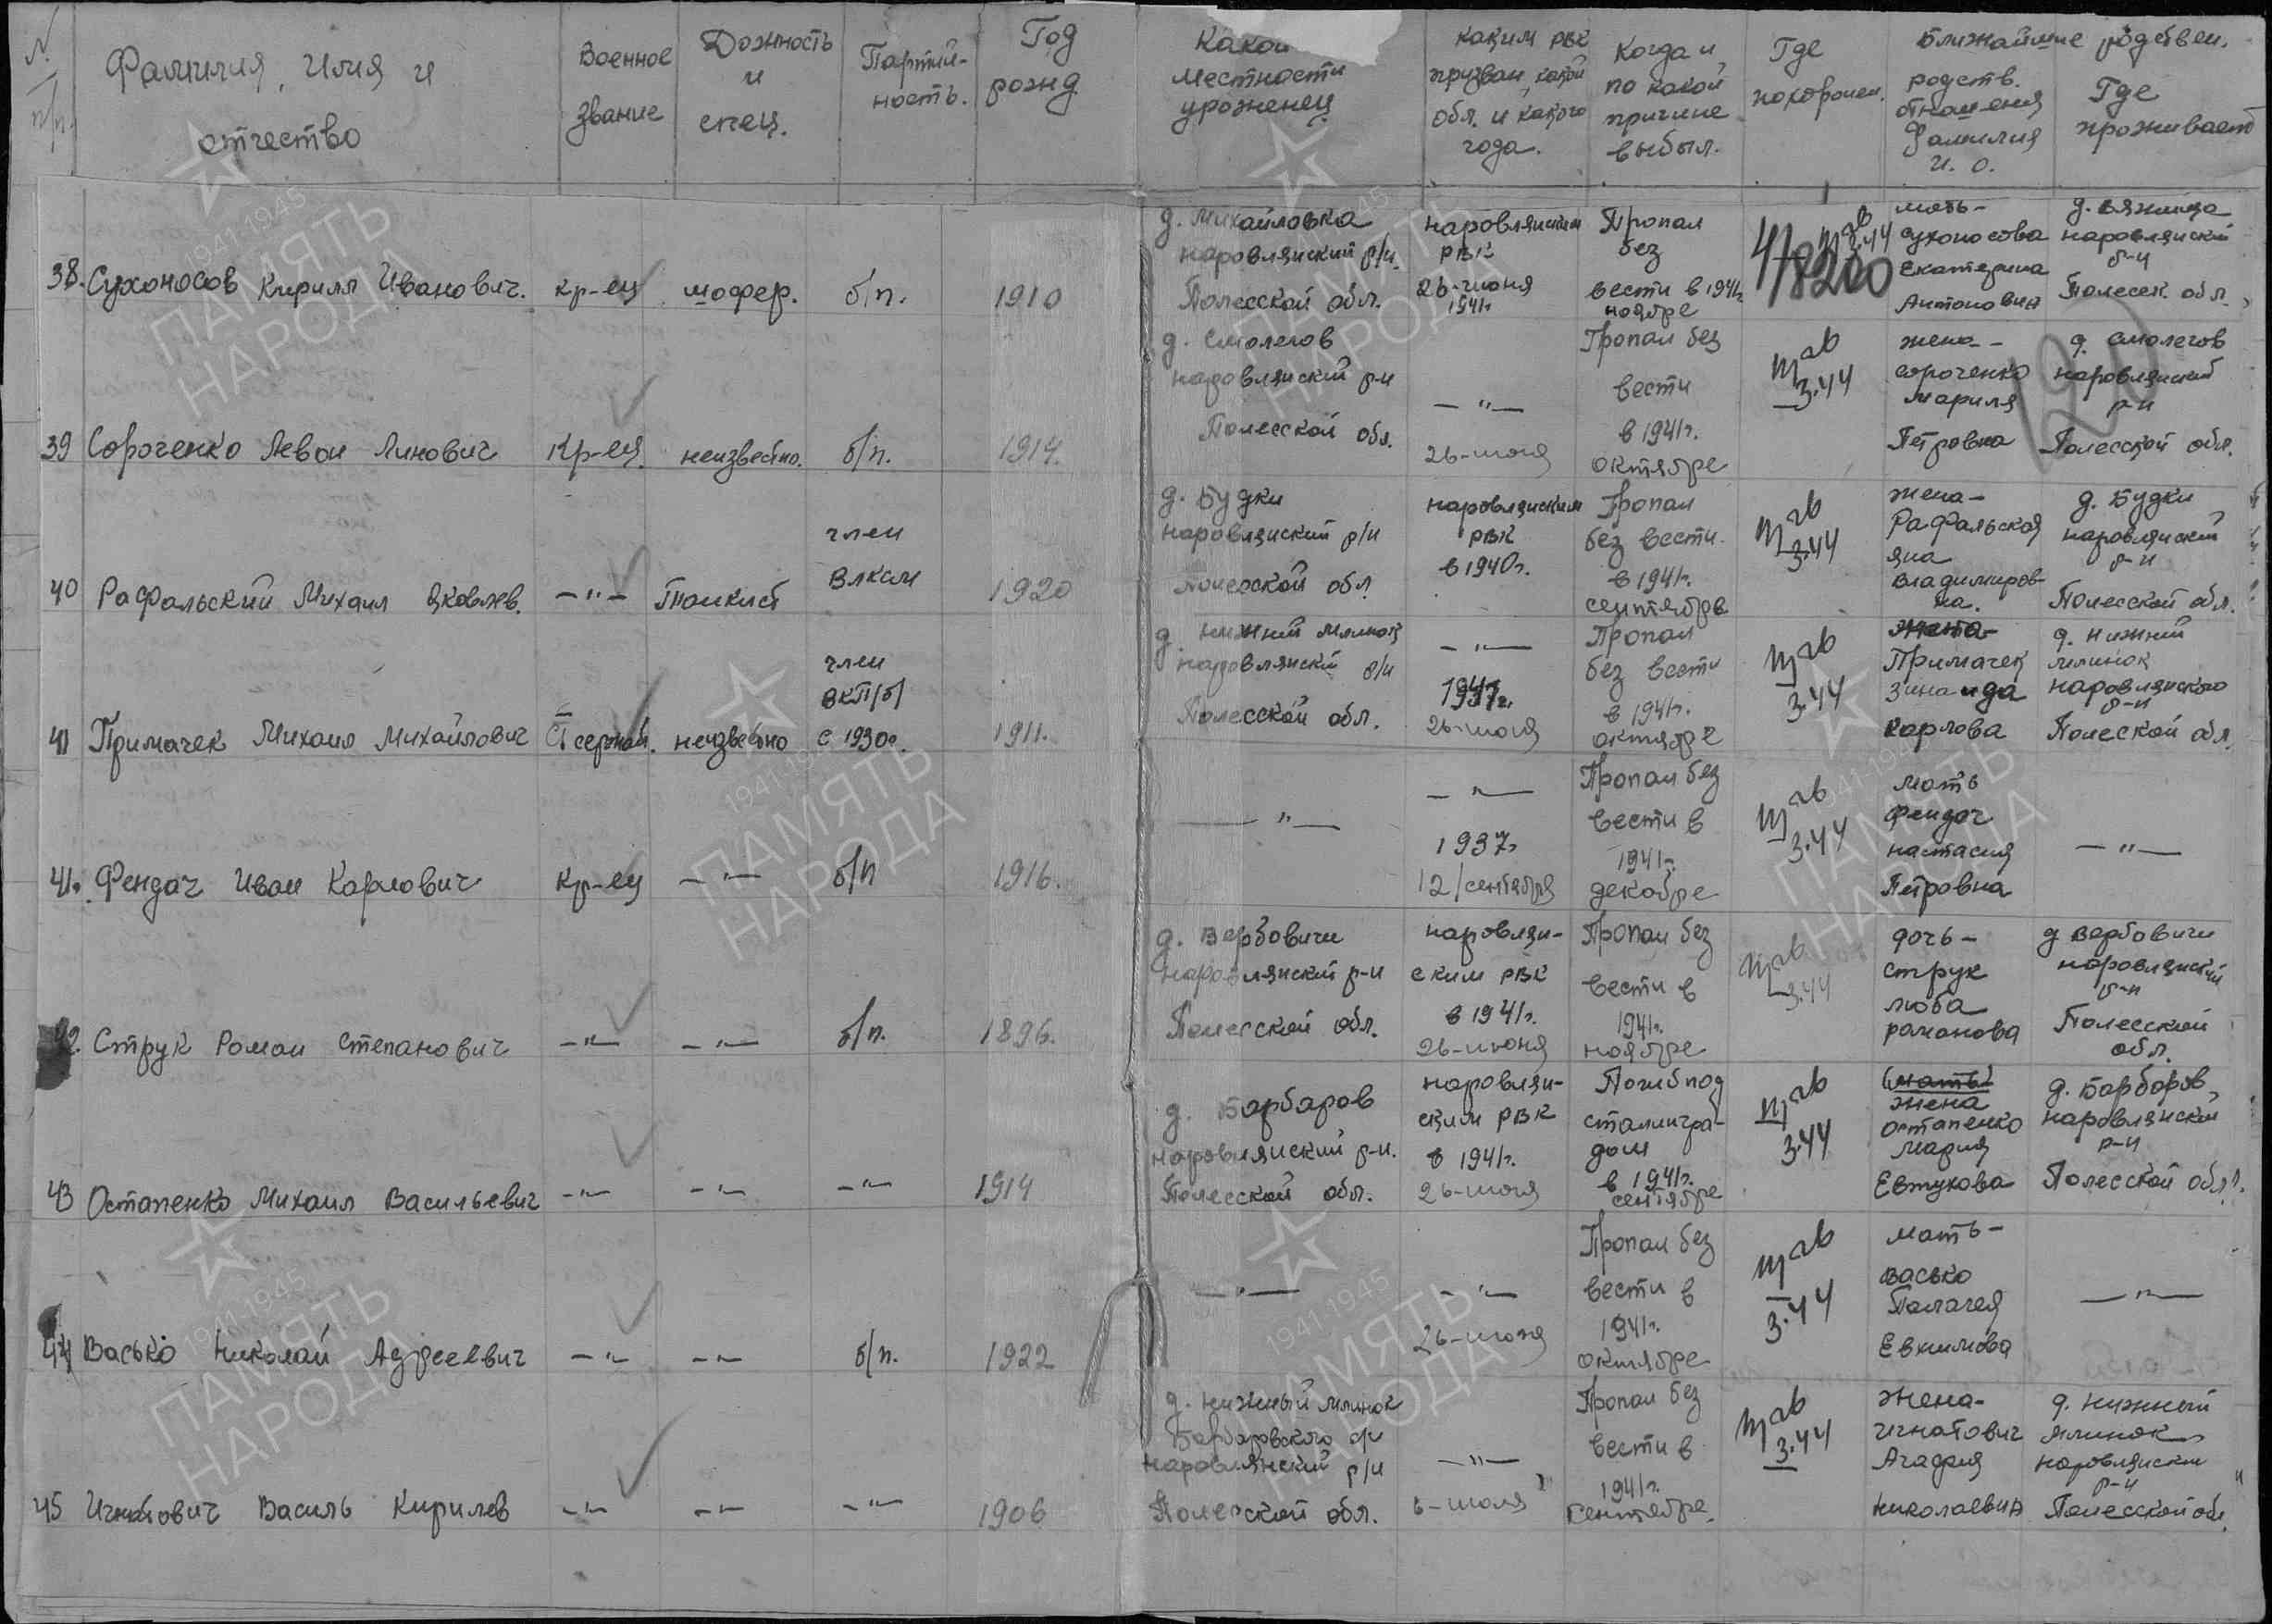 № п/п.
Фамилия, Имя и
отчество
Военное
звание
Дожность
и
спец.
Партий-
ность.
Год
рожд.
Какой
местности
уроженец
каким РВК
призван, какой
обл. и какого
года.
Когда и
по какой
причине
выбыл.
Где
похоронен.
Ближайшие родствен.
родств.
отношения
Фамилия
И. О.
Где
проживает
38. Сухоносов Кирилл Иванович.
кр-ец
шофер.
б/п.
1910
д. Михайловка
наровлянский р/н.
Полесской обл.
наровлянским
РВК
26-июня
1941г.
Пропал
без
вести в 1941г.
ноябре
3.44
48200
мать-
Сухоносова
Екатерина
Антоновна
д. Вяжища
наровлянский
р-н
Полесск. обл.
39 Сороченко Левон Линович
Кр-ец.
неизвестно.
б/п.
1914.
д. Смолегов
наровлянский р-н
Полесской обл.
— " —
26-июня
Пропал без
вести
в 1941г.
октябре
3.44
жена-
сороченко
Мариля
Петровна
д. Смолегов
наровлянский
р-н
Полесской обл.
40 Рафальский Михаил Яковлев.
— " —
Танкист
член
ВЛКСМ
1920
д. Будки
наровлянский р/н
Полесской обл
наровлянским
РВК
в 1940г.
Пропал
без вести
в 1941г.
сентябре
3.44
жена-
Рафальская
яна
Владимиров-
на.
д. Будки
наровлянский
р-н
Полесской обл.
41 Примачек Михаил Михайлович
Ст сержан.
неизвестно
член
ВКП/б/
с 1930г.
1911.
д. Нижний млинок
наровлянский р/н
Полесской обл.
— " —
26-июня
Пропал
без вести
в 1941г.
октябре
3.44
жена-
Примачек
Зинаида
Карлова
д. нижний
млинок
наровлянского
р-н
Полеской обл.
41. Фендач Иван Карлович
кр-ец
— " —
б/п
1916.
— " —
— " —
1937г.
12/сентября
Пропал без
вести в
1941г.
декабре
3.44
мать
Фендач
настасия
Петровна
— " —
42. Струк Роман Степанович
— " —
— " —
б/п.
1896.
д. Вербовичи
наровлянский р-н
Полесской обл.
наровлян-
ским РВК
в 1941г.
26-июня
Пропал без
вести в
1941г.
ноябре
3.44
дочь-
струк
люба
раманова
д Вербовичи
наровлянский
р-н
Полесской
обл.
43 Остапенко Михаил Васильевич
— " —
— " —
— " —
1914
д. Барбаров
наровлянский р-н.
Полесской обл.
наровлян-
ским РВК
в 1941г.
26-июня
Погиб под
сталингра-
дом
в 1941г.
сентябре
3.44
(мать)
жена
остапенко
мария
Евтухова
д. Барборов,
наровлянский
р-н
Полесской обл.
44 Васько Николай Адреевич
— " —
— " —
б/п.
1922
— " —
— " —
26-июня
Пропал без
вести в
1941г.
октябре
3.44
мать-
васько
Палагея
Евхимова
— " —
45 Игнатович Василь Кирилев
— " —
— " —
— " —
1906
д. нижный млинок
Барбаровского с/с
наровлянский р/н
Полесской обл.
— " —
6-июля
Пропал без
вести в
1941г.
Сентябре.
3.44
Жена-
игнатович
Агафия
николаевна
д. нижный
млинок
наровлянский
р-н
Полесской обл.
1941-1945
ПАМЯТЬ
НАРОДА